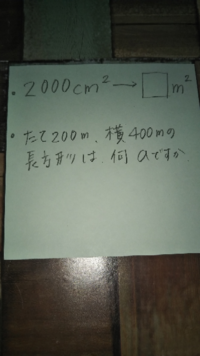 ・2000cm²→□m²
・たて200m、横400mの
長方形は、何aですか